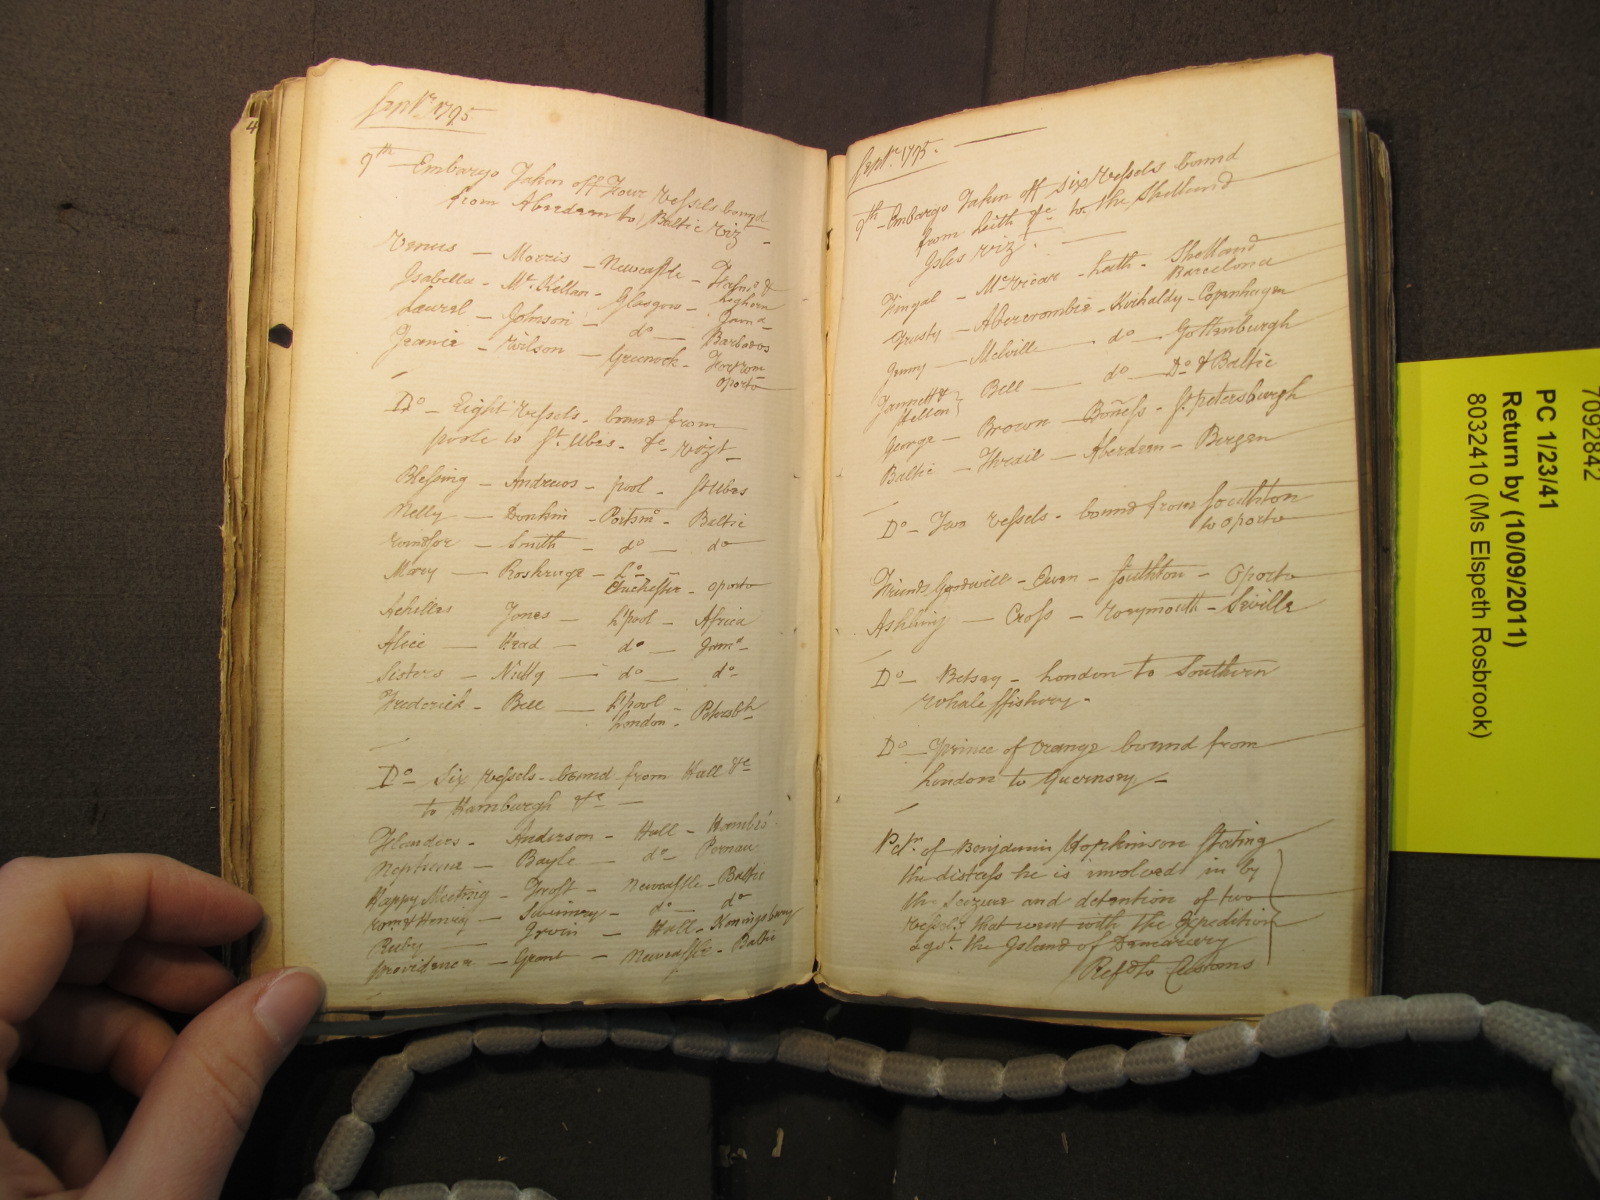 4
Septr. 1795
9th Embargo Taken off Four Vessels bound
from Aberdeen to Baltic Vizt
Venus — Morris — Newcastle —
Isabella — Mc.Kellan — Glasgow — Leghorn
Laurel — Johnson — do — Jama
Barbados
Jeanie — Wilson — Greenock —
oporto
Do — Eight Vessels bound from
poole to St. Ubes &c vizt
Blessing — Andrews — pool — St Ubes
Nelly — Donkin — Portsmo — Baltic
Windsor — Smith — do — do
Mary — Roskruge — Lo
Chichester — oporto
Achilles — Jones — Lpool — Africa
Alice — Head — do — Jama
Sisters — Nutty — do — do
Frederick — Bell — Lpool
London — Petersbh
Do — Six Vessels bound from Hull &c
to Hamburgh &c —
Flanders — Anderson — Hull — Hambro'
Neptune — Bayle — do — Pernau
Happy Meeting — Frost — Newcastle — Baltic
Wm & Henry — Swinney — do — do
Ruby — Irwin — Hull — Koningsbury
providence — Grant — Newcastle — Baltic
Septr. 1795.
9th Embargo Taken off six Vessels bound
from Leith &c to the Shetland
Isles vizt. —
Fingal — McVicar — Leith — Shetland
Barcelona
Trusty — Abercrombie — Kirkaldy — Copenhagen
Jenny — Melville — do — Gottenburgh
Jannett &
Hellen } Bell — do — Do & Baltic
George — Brown — Boness — St. petersburgh
Baltic — Thrail — Aberdeen — Bergen
Do — Two Vessels — bound from Southton
to oporto
Friends Goodwill — Owen — Southton — Oporto
Ashling — Cross — Weymouth — Seville
Do — Betsey — London to Southern
Whale ffishery —
Do — prince of orange bound from
London to Guernsey —
Petn. of Benjamin Hopkinson Stating
the distress he is involved in by
the Seizure and detention of two
Vessels that went with the Expedition
agst. the Island of Demarary
Refd to Customs
7092842
PC 1/23/41
Return by (10/09/2011)
8032410 (Ms Elspeth Rosbrook)